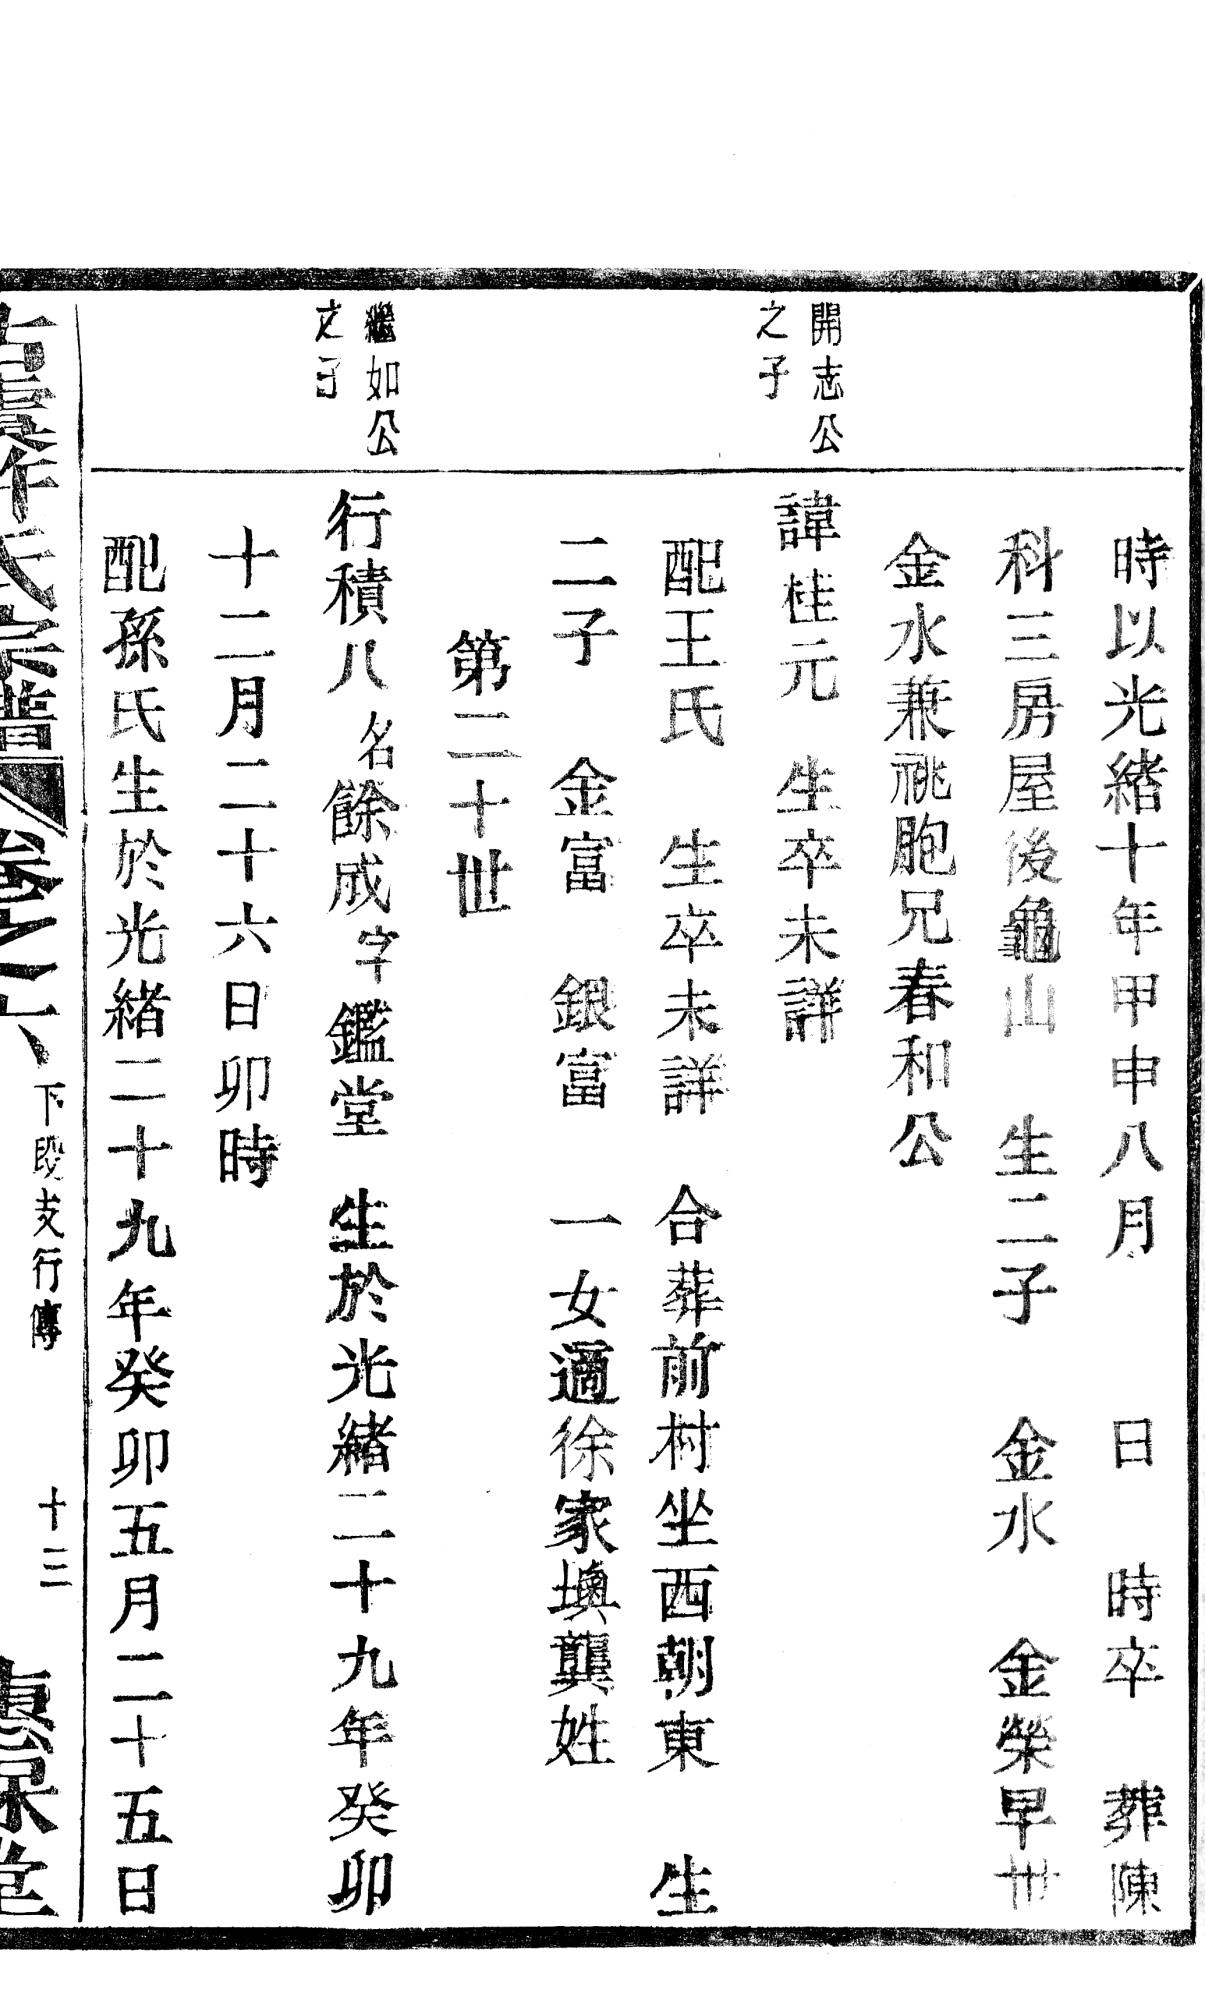 時以光緒十年甲申八月　日　時卒　葬陳
科三房屋後龜山　生二子　金水　金榮早世
金水兼祧胞兄春和公
開志公
之子
諱桂元　生卒未詳
配王氏　生卒未詳　合葬前村坐西朝東　生
二子　金富　銀富　一女適徐家墺龔姓
第二十世
繼如公
之子
行積八名餘成字鑑堂　生於光緒二十九年癸卯
十二月二十六日卯時
配孫氏生於光緒二十九年癸卯五月二十五日
氏宗譜　卷之六　下段支行傳　十三　堂